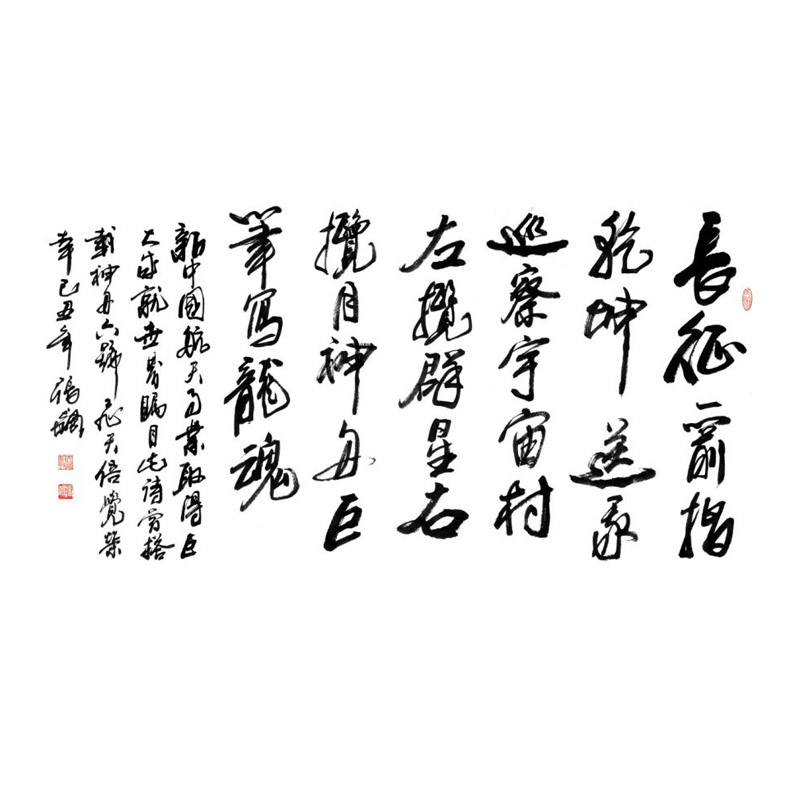 長征一箭指
乾坤送我
巡察宇宙村
左攬群星右
攬月神舟巨
筆寫龍魂
新中國航天事業取得巨
大成就世界矚目此詩曾搭
載神舟六號飛天倍覺榮
幸己丑年張飈